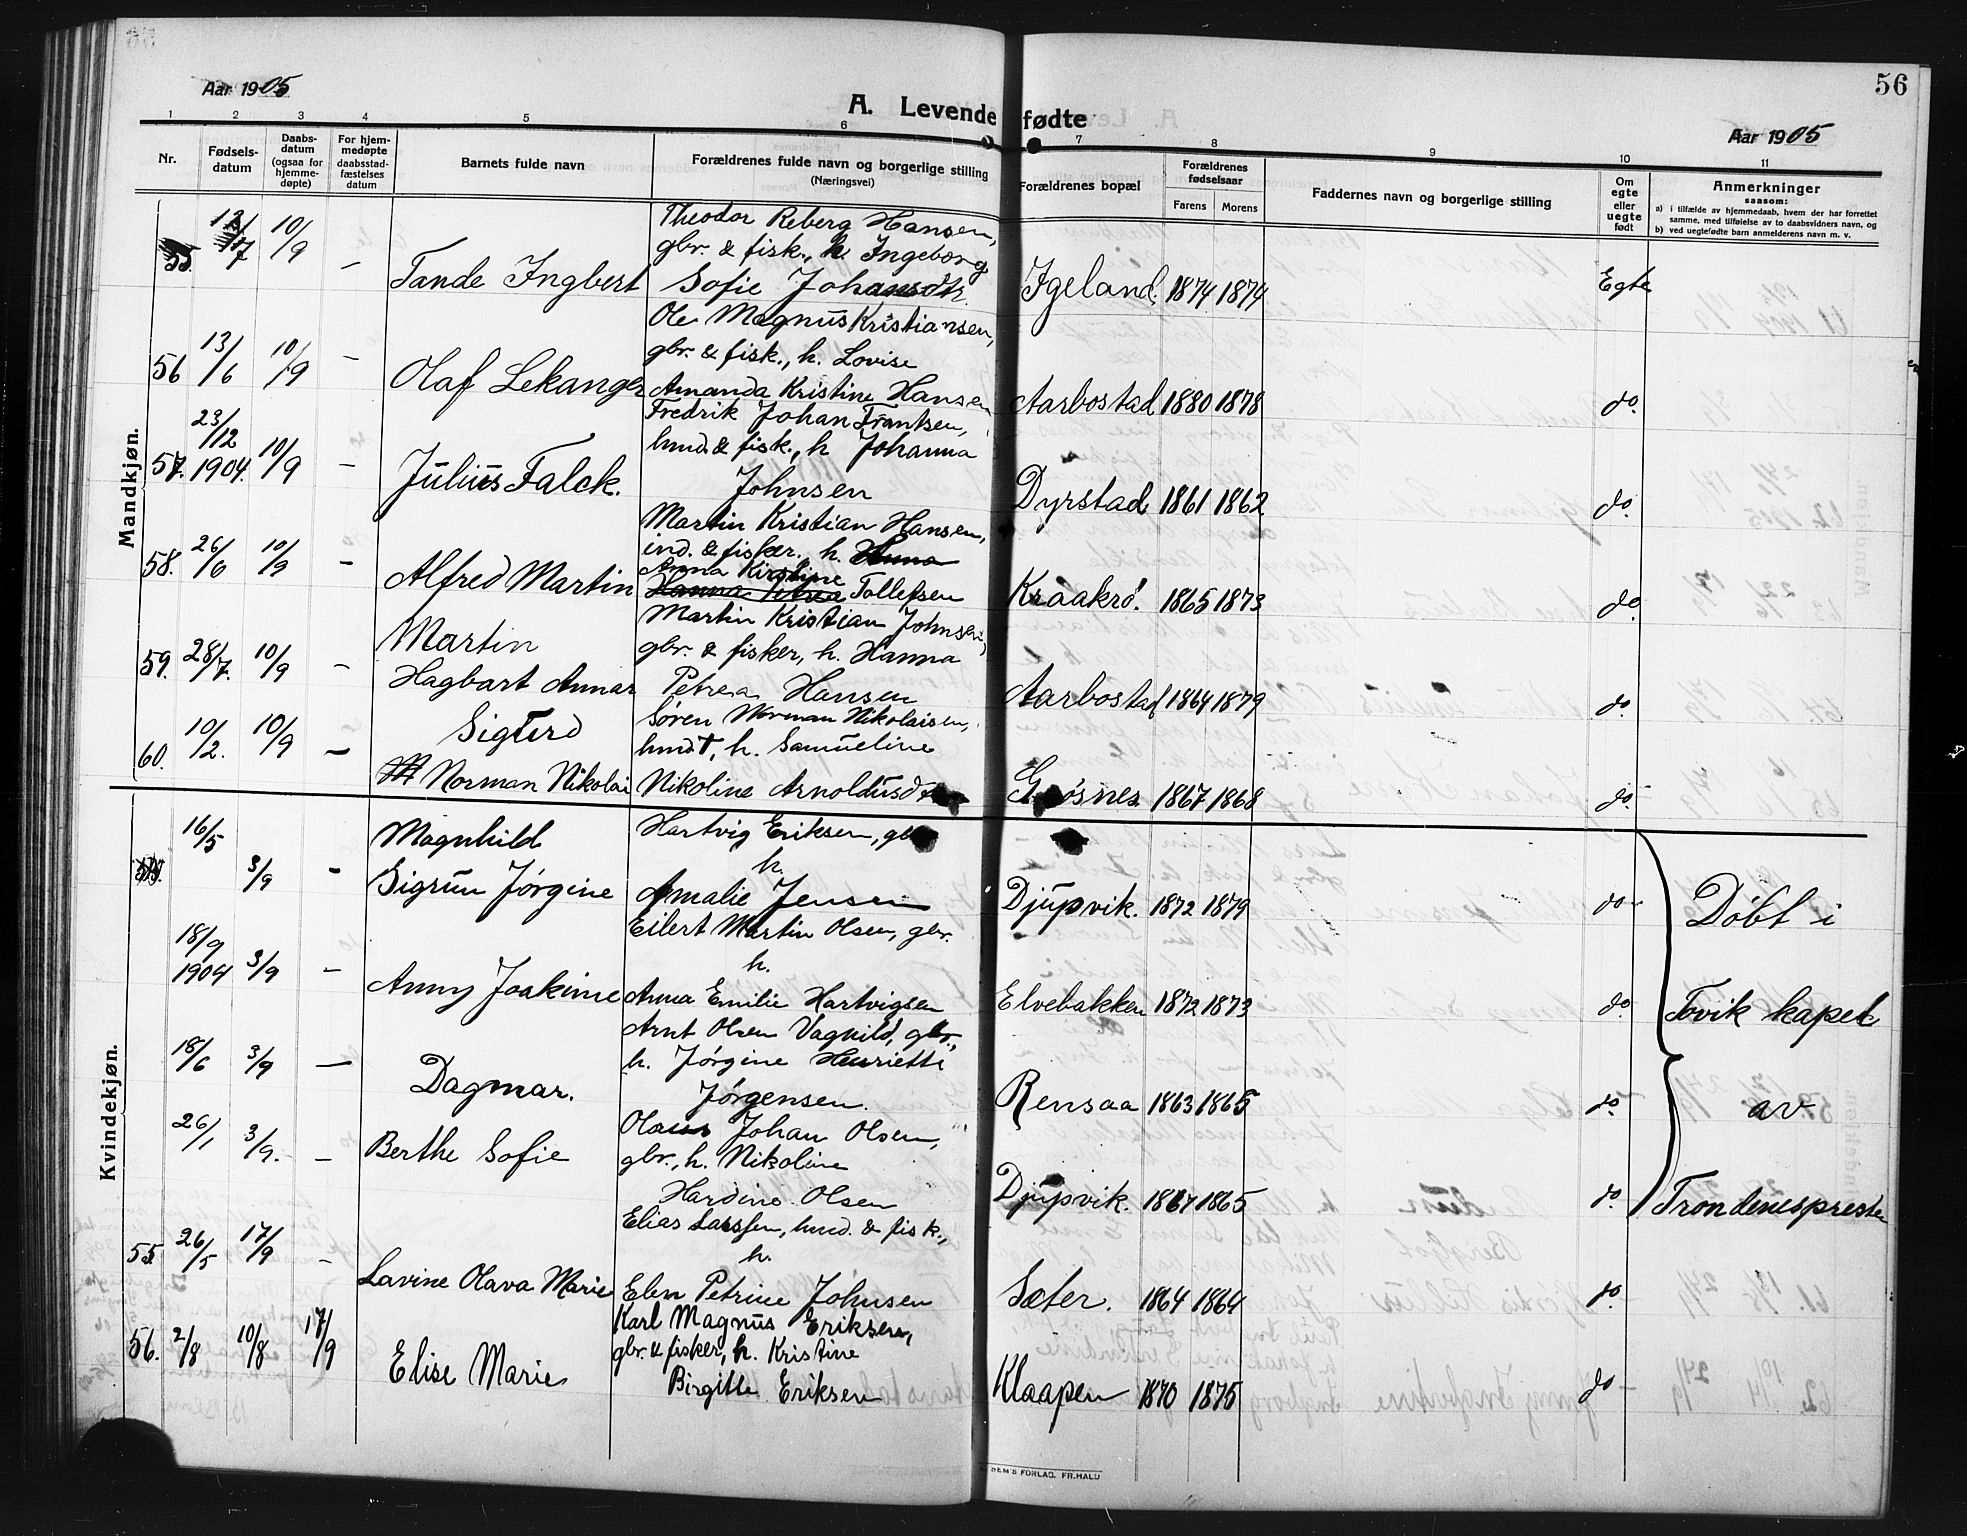 56
Aar 1905
A. Levende fødte
Aar 1905
1 2 3 4 5 6 7 8 9 10 11
Nr.
Fødsels-
datum
Daabs-
datum
(ogsaa for
hjemme-
døpte)
For hjem-
medøpte
daabsstad-
fæstelses
datum
Barnets fulde navn
Forældrenes fulde navn og borgerlige stilling
(Næringsvei)
Forældrenes bopæl
Forældrenes
fødselsaar
Farens Morens
Faddernes navn og borgerlige stilling
Om
egte
eller
uegte
født
Anmerkninger
saasom:
a) i tilfælde av hjemmedaab, hvem der har forrettet
samme, med tilføielse av to daabsvidners navn, og
b) ved uegtefødte barn anmelderens navn m. v.
Mandkjøn.
Theodor Reberg Hansen,
gbr. & fisk., h. Ingeborg
55. 12/7 10/9 – Tande Ingbert Sofie Johansdtr. Igeland 1874 1874 Egte
Ole Magnus Kristiansen,
gbr. & fisk., h. Lovise
56 13/6 10/9 – Olaf Lekanger Amanda Kristine Hansen Aarbostad 1880 1878 do.
Fredrik Johan Frantsen,
23/12
hmd. & fisk., h Johanna
57. 1904. 10/9 – Julius Falck. Johnsen Dyrstad 1861 1862 do.
Martin Kristian Hansen,
ind. & fisker., h.
Anna Kirstine
58. 26/6 10/9 – Alfred Martin Tollefsen Kraakrø. 1865 1873 do.
Martin Kristian Johnsen,
Martin
gbr. & fisker, h. Hanna
59. 28/7. 10/9 – Hagbart Annar Petrea Hansen Aarbostad 1864 1879 do.
Sigurd
Søren Norman Nikolaisen,
hmd., h. Samueline
60. 10/2. 10/9 – Norman Nikolai Nikoline Arnoldusd Grøsnes. 1867 1868 do.
Kvindekjøn.
16/5 Magnhild Hartvig Eriksen, gbr
h.
3/9 – Sigrun Jørgine Amalie Jensen Djupvik. 1872 1879 do Døbt i
Eilert Martin Olsen, gbr.
h.
18/9
1904 3/9 – Anny Joakime Anna Emilie Hartvigsen Elvebakken 1872 1873 do. Tovik kapel
Arnt Olsen Vagnild, gbr.,
h. Jørgine Henriette
18/6 3/9 – Dagmar. Jørgensen. Rensaa 1863 1865 do. av
Olaus Johan Olsen,
gbr., h. Nikoline
26/1 3/9. – Berthe Sofie Hardine Olsen Djupvik. 1867 1865 do. Trondenesprester
Elias Larssen, hmd. & fisk.,
h.
55. 26/5 17/9 – Lavine Olava Marie Elen Petrine Johnsen Sæter. 1864 1864 do.
Karl Magnus Eriksen,
gbr. & fisker, h. Kristine
56. 2/8 10/8 17/9 Elise Marie Birgitte Eriksen Klaapen 1870 1875 do
SEM'S FORLAG, FR.HALD